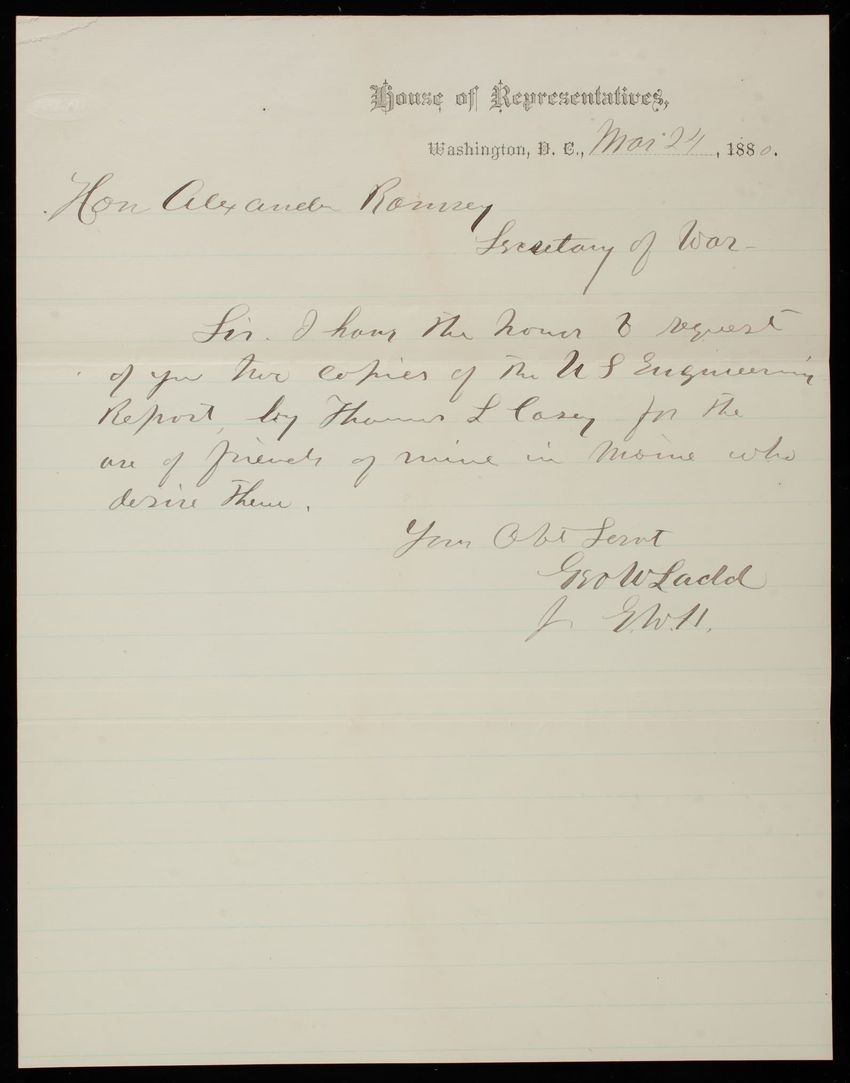 House of Representatives,
Washington, D. C., Mar 24, 1880.
Hon Alexander Ramsey
Secretary of War -
Sir. I have the honor to request
of you two copies of the U S Engineering
Report, by Thomas L Casey for the
use of friends of mine in Maine who
desire them.
Your Obt Servt
Geo W Ladd